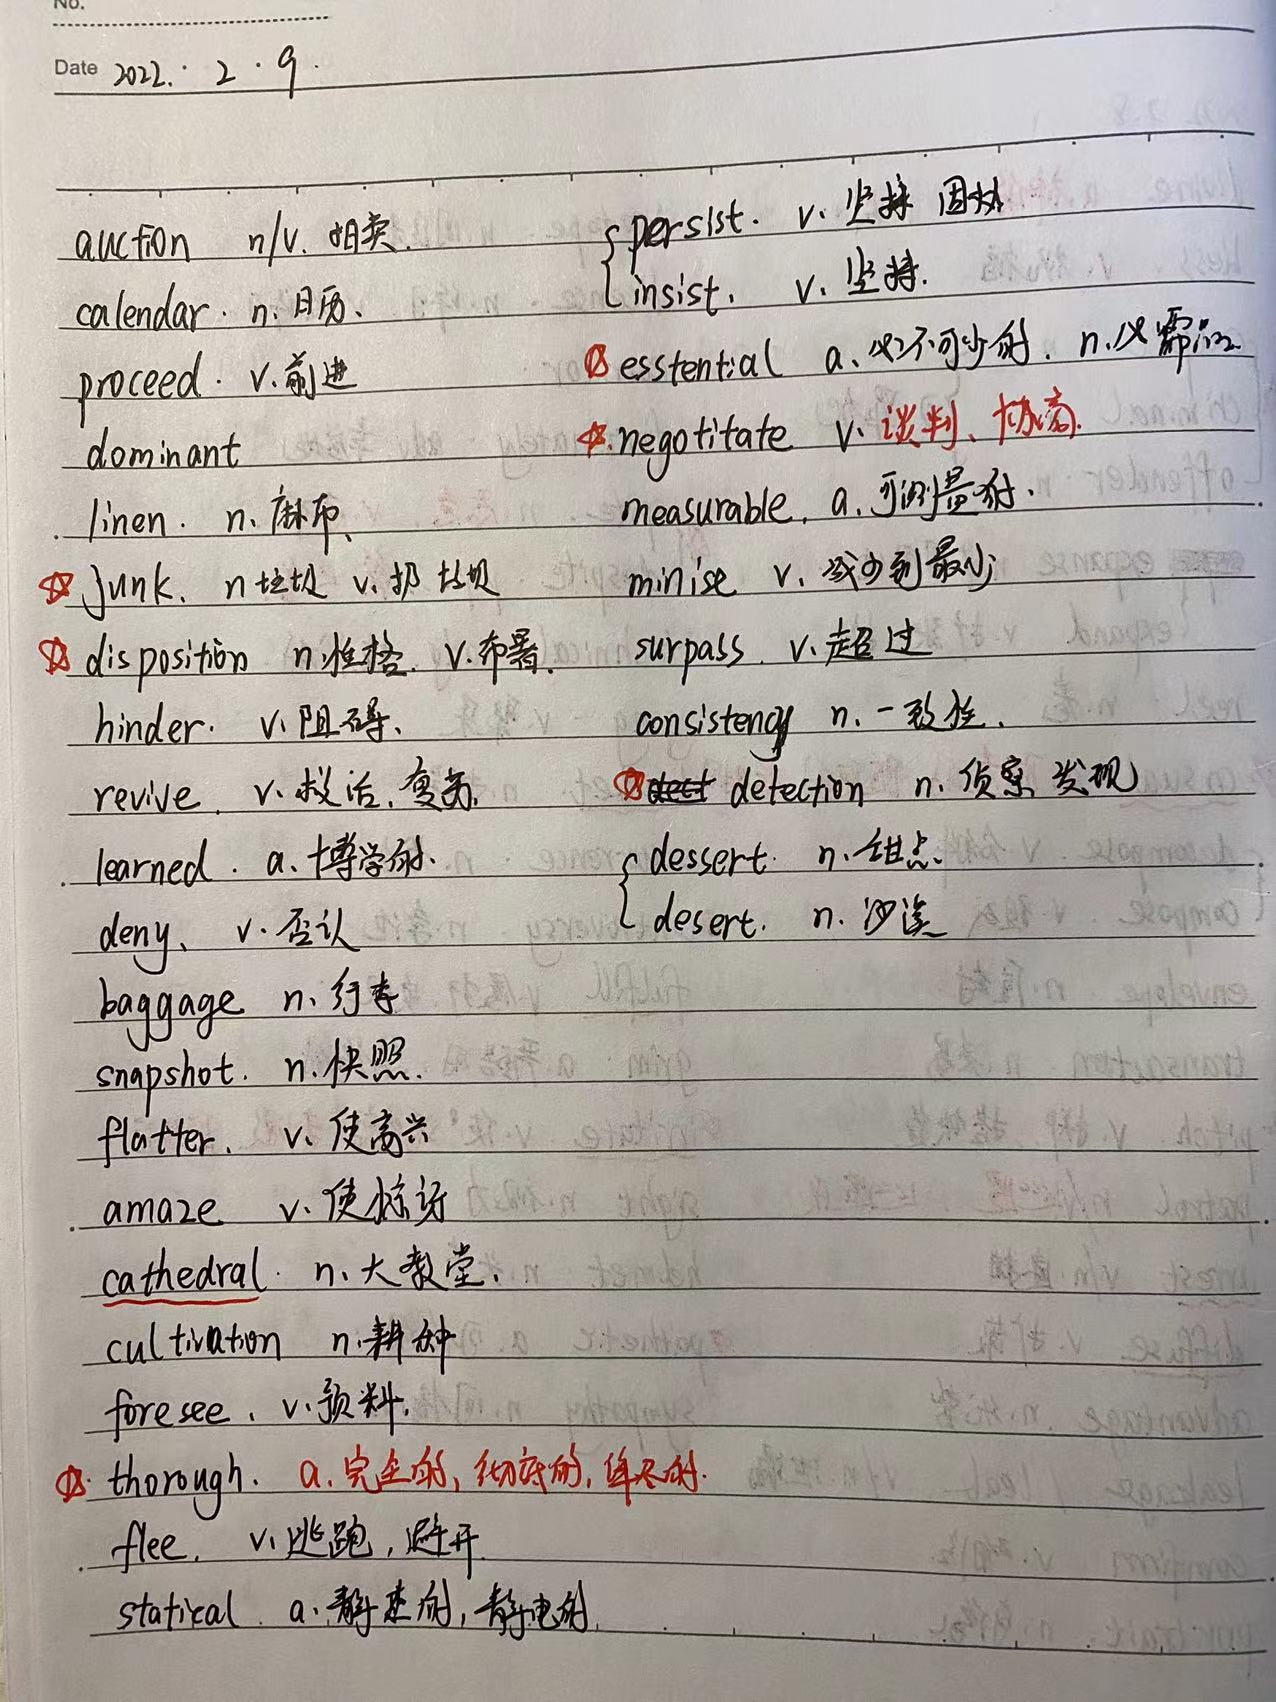 No.
Date 2022. 2. 9.
auction n/v. 拍卖.
calendar. n. 日历、
proceed. v. 前进
dominant
linen. n. 麻布、
junk、 n 垃圾 v. 扔垃圾
disposition n. 性格. v. 布署.
hinder. v. 阻碍、
revive. v. 救活、复苏.
learned. a. 博学的.
deny、 v. 否认
baggage n. 行李
snapshot. n. 快照.
flatter. v. 使高兴
amaze v. 使惊讶
cathedral. n. 大教堂、
cultivation n. 耕种
foresee. v. 预料.
thorough. a. 完全的, 彻底的, 详尽的.
flee. v. 逃跑, 避开
statical a. 静态的, 静电的.
persist. v. 坚持 固执
insist. v. 坚持.
esstential a. 必不可少的. n. 必需品.
negotitate v. 谈判、协商.
measurable. a. 可测量的.
minise v. 减少到最小
surpass v. 超过
consistency n. 一致性.
detection n. 侦察 发现
dessert. n. 甜点.
desert. n. 沙漠